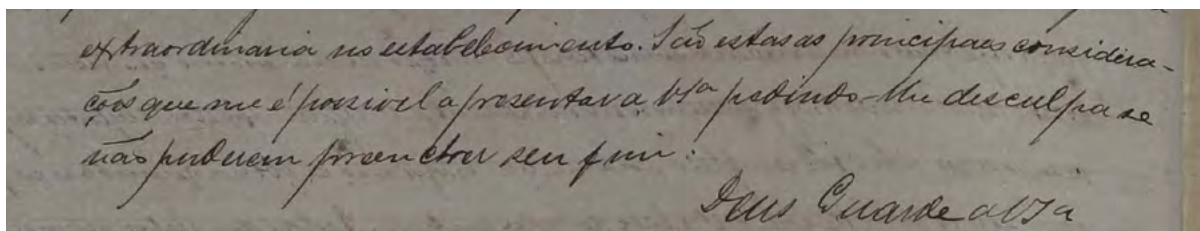 extraordinaria no estabelecimento. São estas as principaes considera-
ções que me é possivel apresentar a Vsª pedindo-lhe desculpa se
não puderem preencher seu fim.
Deus Guarde a VSª